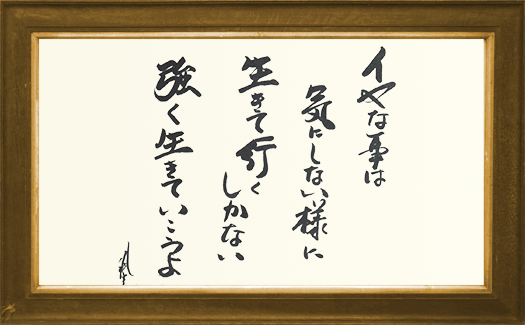 イやな事は
気にしない様に
生きて行く
しかない
強く生きていこうよ